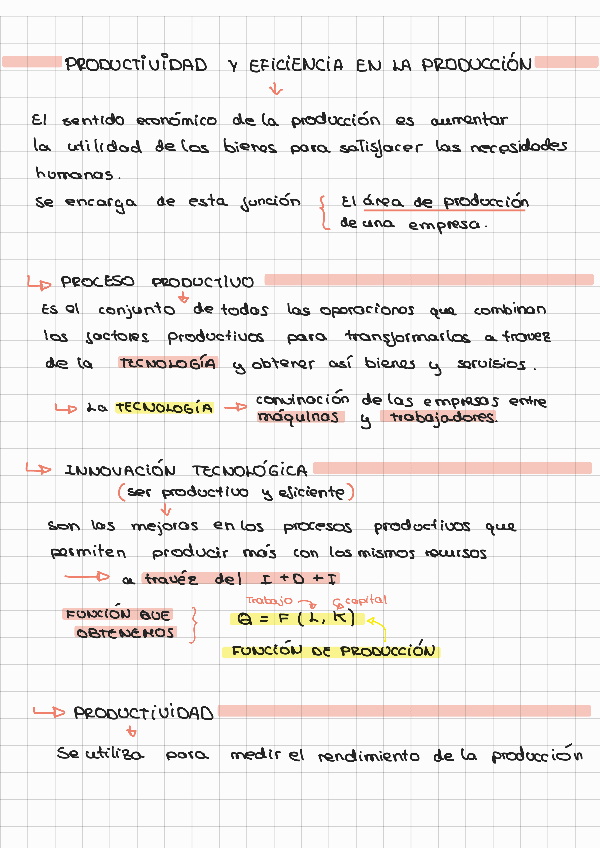 PRODUCTIVIDAD Y EFICIENCIA EN LA PRODUCCIÓN
El sentido económico de la producción es aumentar
la utilidad de los bienes para satisfacer las necesidades
humanas.
Se encarga de esta función { El área de producción
de una empresa.
PROCESO PRODUCTIVO
Es el conjunto de todas las operaciones que combinan
los factores productivos para transformarlos a travez
de la TECNOLOGÍA y obtener así bienes y servisios.
La TECNOLOGÍA → convinación de las empresas entre
máquinas y trabajadores.
INNOVACIÓN TECNOLÓGICA
(ser productivo y eficiente)
son las mejoras en los procesos productivos que
permiten producir más con los mismos recursos
→ a travéz del I+D+I
Trabajo capital
FUNCIÓN QUE
OBTENEMOS
Q = F (L, K)
FUNCIÓN DE PRODUCCIÓN
PRODUCTIVIDAD
Se utiliza para medir el rendimiento de la producción